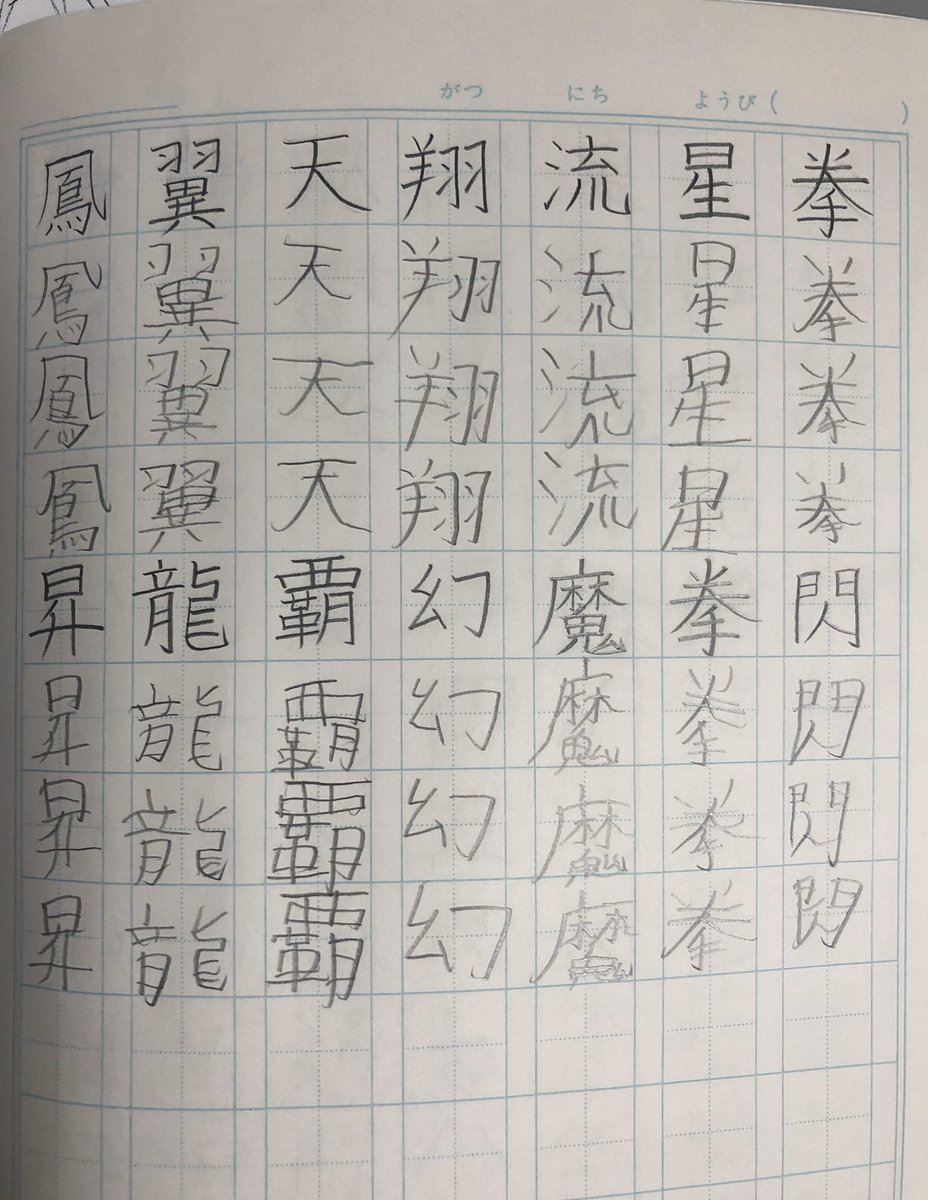 がつ にち ようび( )
拳拳拳拳閃閃閃閃
星星星星拳拳拳拳
流流流流魔魔魔魔
翔翔翔翔幻幻幻幻
天天天天覇覇覇覇
翼翼翼翼龍龍龍龍
鳳鳳鳳鳳昇昇昇昇